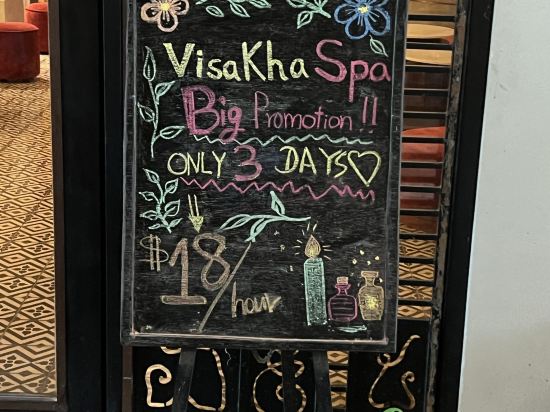 VisaKha Spa
Big Promotion!!
ONLY 3 DAYS♡
$18/hour